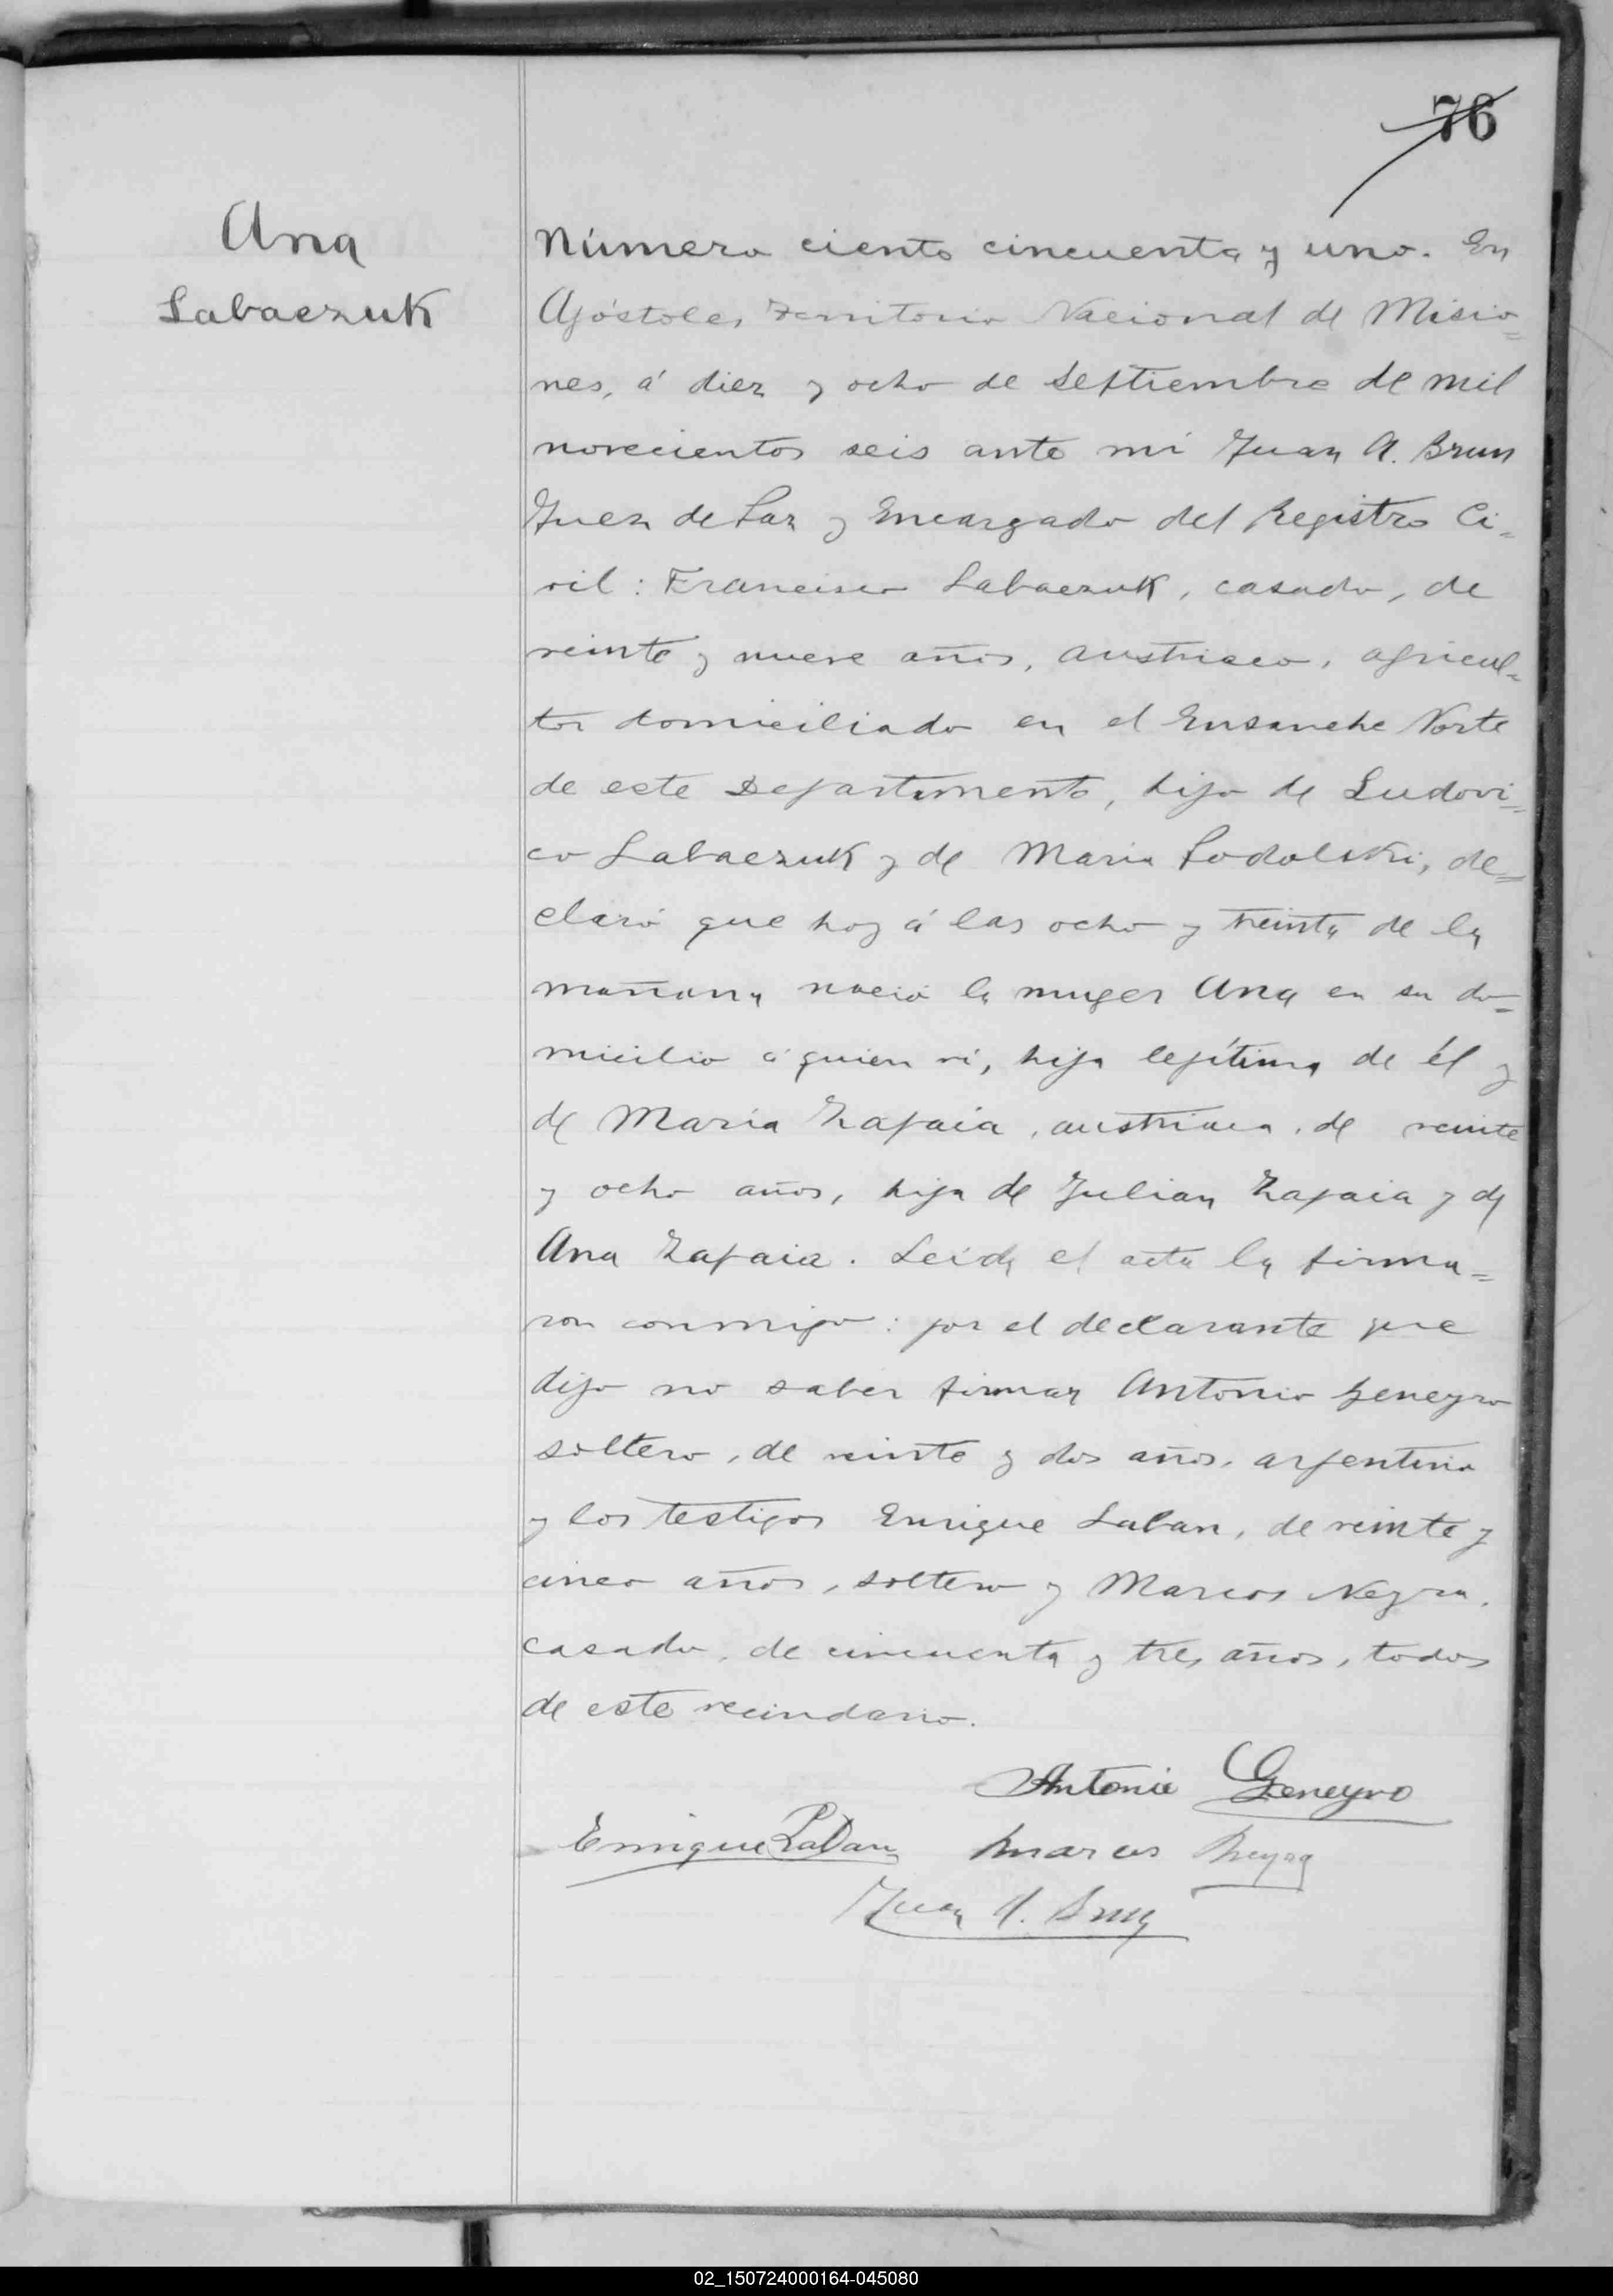 76
Ana
Labaczuk
Número ciento cincuenta y uno. En
Apóstoles, Territorio Nacional de Misio=
nes, á diez y ocho de Septiembre de mil
novecientos seis ante mi Juan A. Brun
Juez de Paz y Encargado del Registro Ci=
vil: Francisco Labaczuk, casado, de
veinte y nueve años, austriaco, agricul=
tor domiciliado en el Ensanche Norte
de este Departamento, hijo de Ludovi=
co Labaczuk y de Maria Podolski, de=
claró que hoy á las ocho y treinta de la
mañana nació la muger Ana en su do=
micilio á quien ví, hija legítima de él y
de María Zapaia, austriaca, de veinte
y ocho años, hija de Julian Zapaia y de
Ana Zapaia. Leida el acta la firma=
ron conmigo: por el declarante que
dijo no saber firmar Antonio Geneyro
soltero, de veinte y dos años, argentino
y los testigos Enrique Laban, de veinte y
cinco años, soltero y Marcos Neyra,
casado, de cincuenta y tres años, todos
de este vecindario.
Antonio Geneyro
Enrique Laban Marcos Neyra
Juan A. Brun
02_150724000164-045080